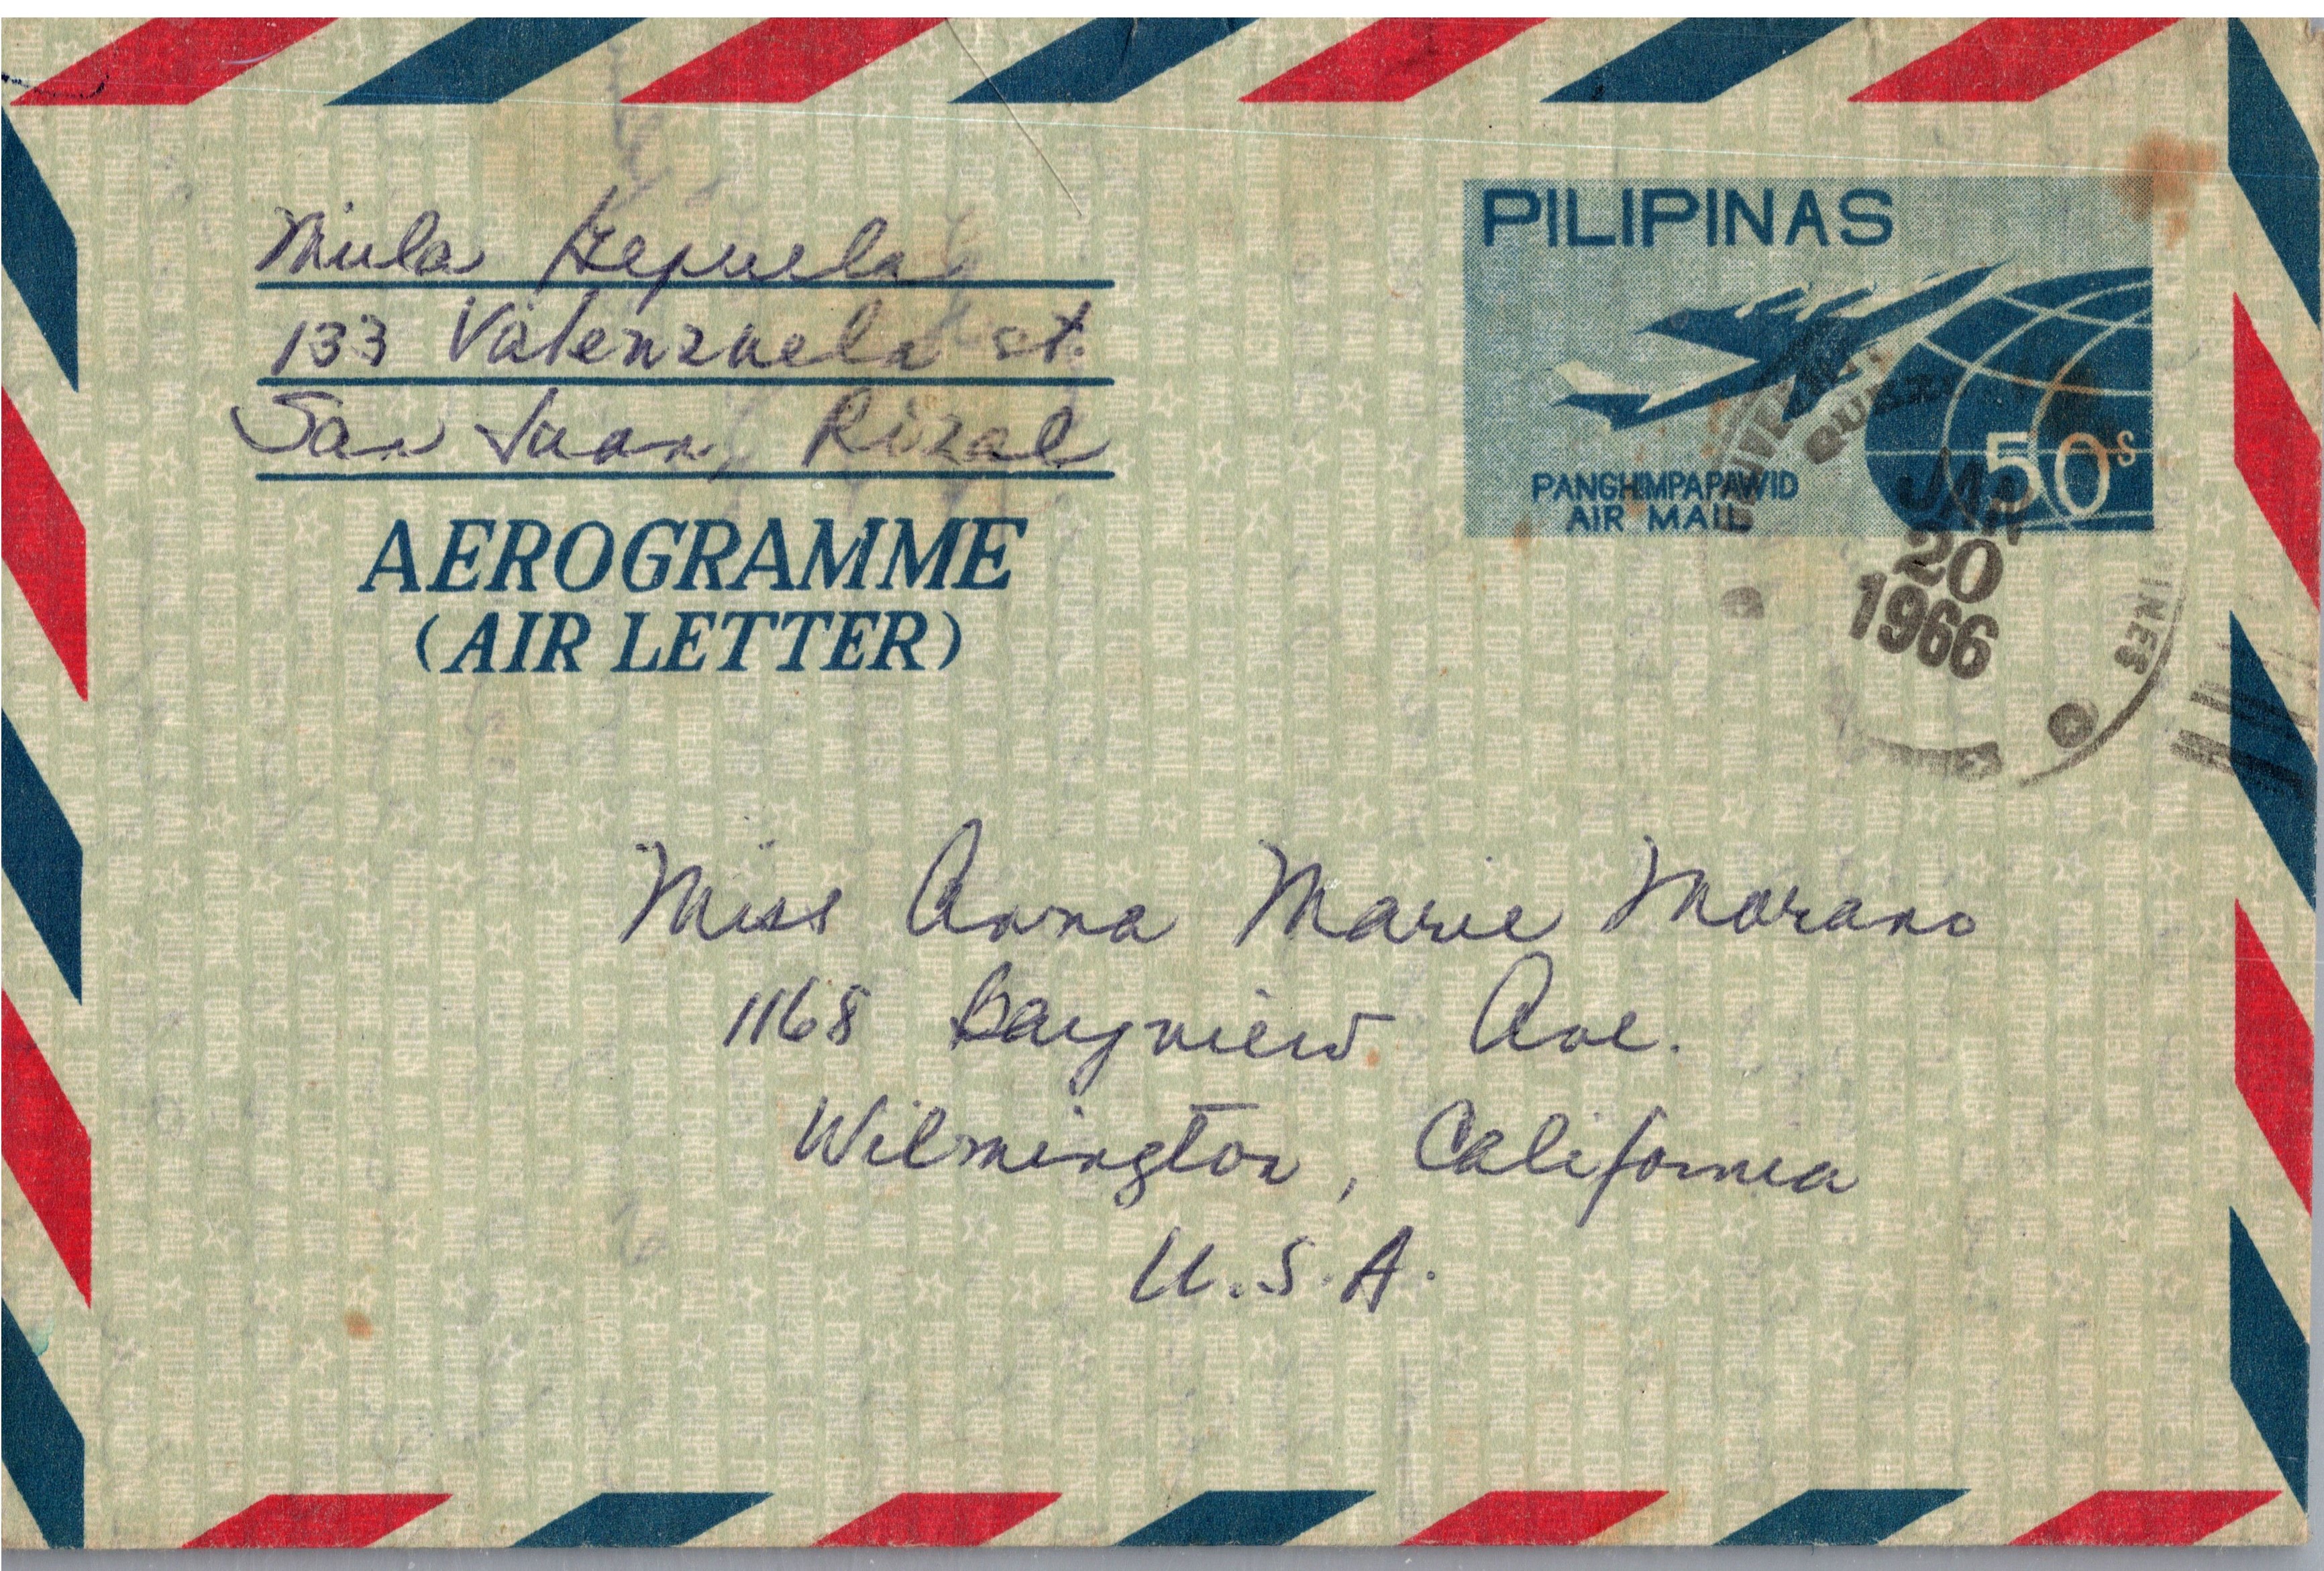 133 Valenzuela st.
San Juan, Rizal
AEROGRAMME
(AIR LETTER)
PILIPINAS
50s
PANGHIMPAPAWID
AIR MAIL
JAN
20
1966
Miss Anna Marie Morano
1168 Bayview Ave.
Wilmington, California
U.S.A.